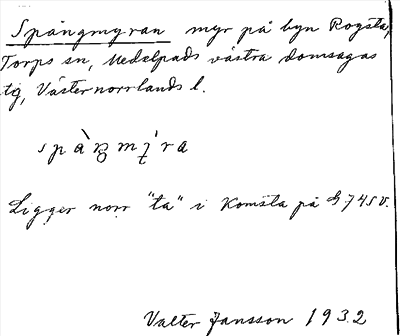 Spångmyran myr på byn Rogsta,
Torps sn, Medelpads västra domsagas
tig, Västernorrlands l.
Ligger norr "ta" i Komsta på G.745 V.
Valter Jansson 1932